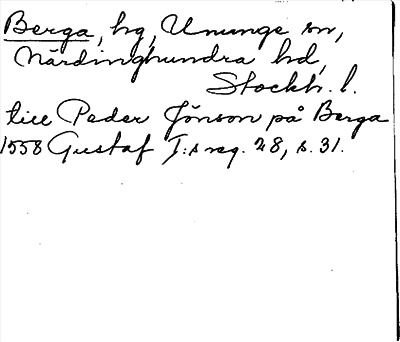 Berga, hg, Ununge sn,
Närdinghundra hd,
Stockh. l.
till Peder Jönson på Berga
1558 Gustaf I:s reg. 28, s. 31.